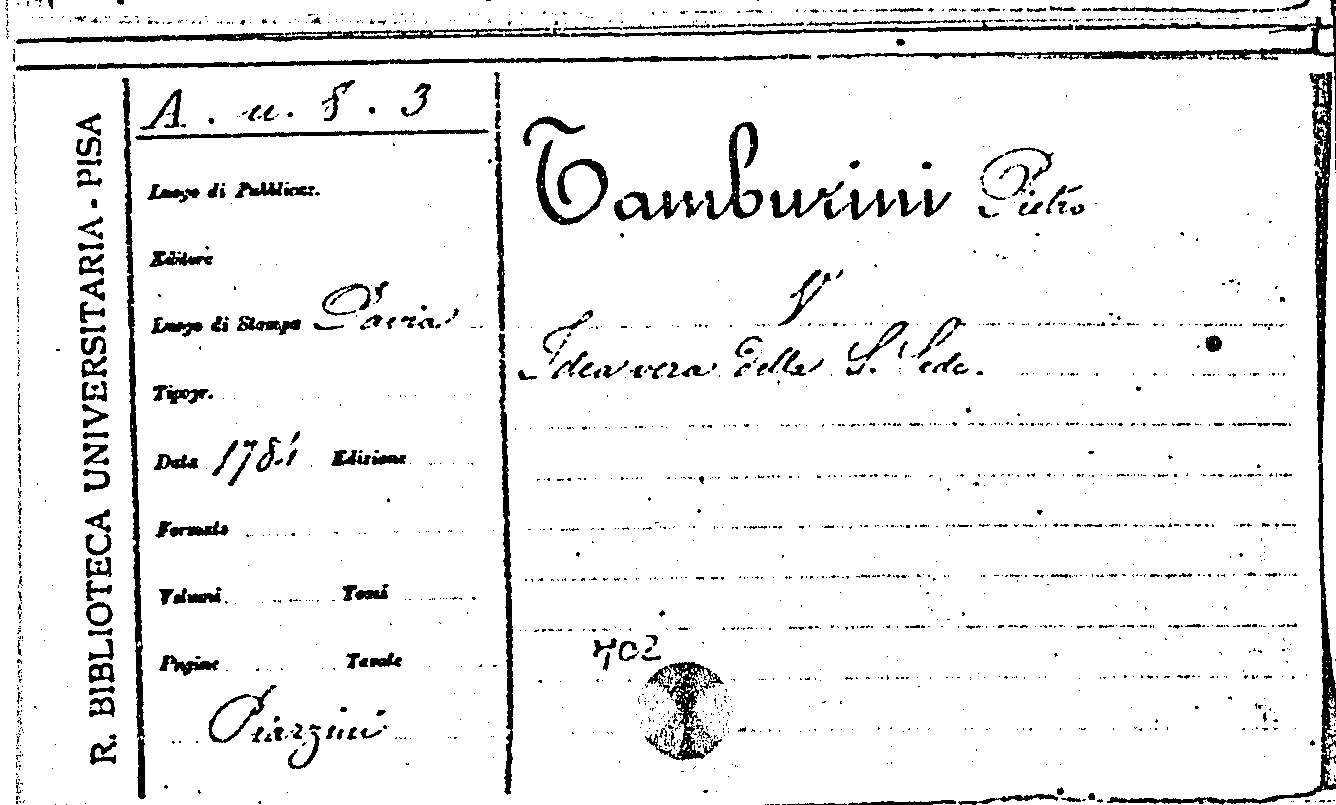 R. BIBLIOTECA UNIVERSITARIA - PISA
A. u. 8. 3
Luogo di Pubblicaz.
Editore
Luogo di Stampa Pavia
Tipogr.
Data 1784 Edizione
Formato
Volumi Tomi
Pagine Tavole
Piazzini
Tamburini Pietro
Idea vera della S. Sede.
702